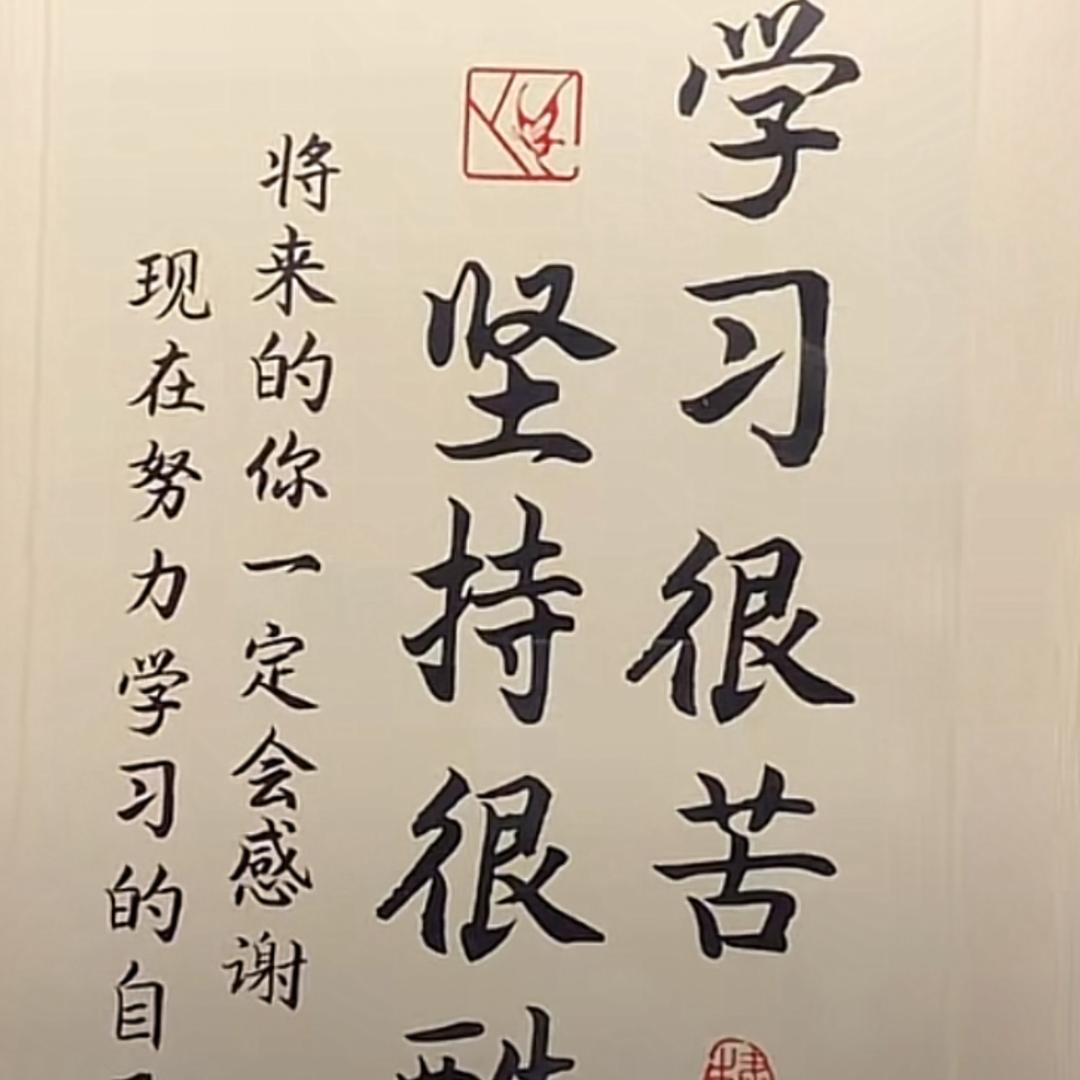 学习很苦
坚持很酷
将来的你一定会感谢
现在努力学习的自